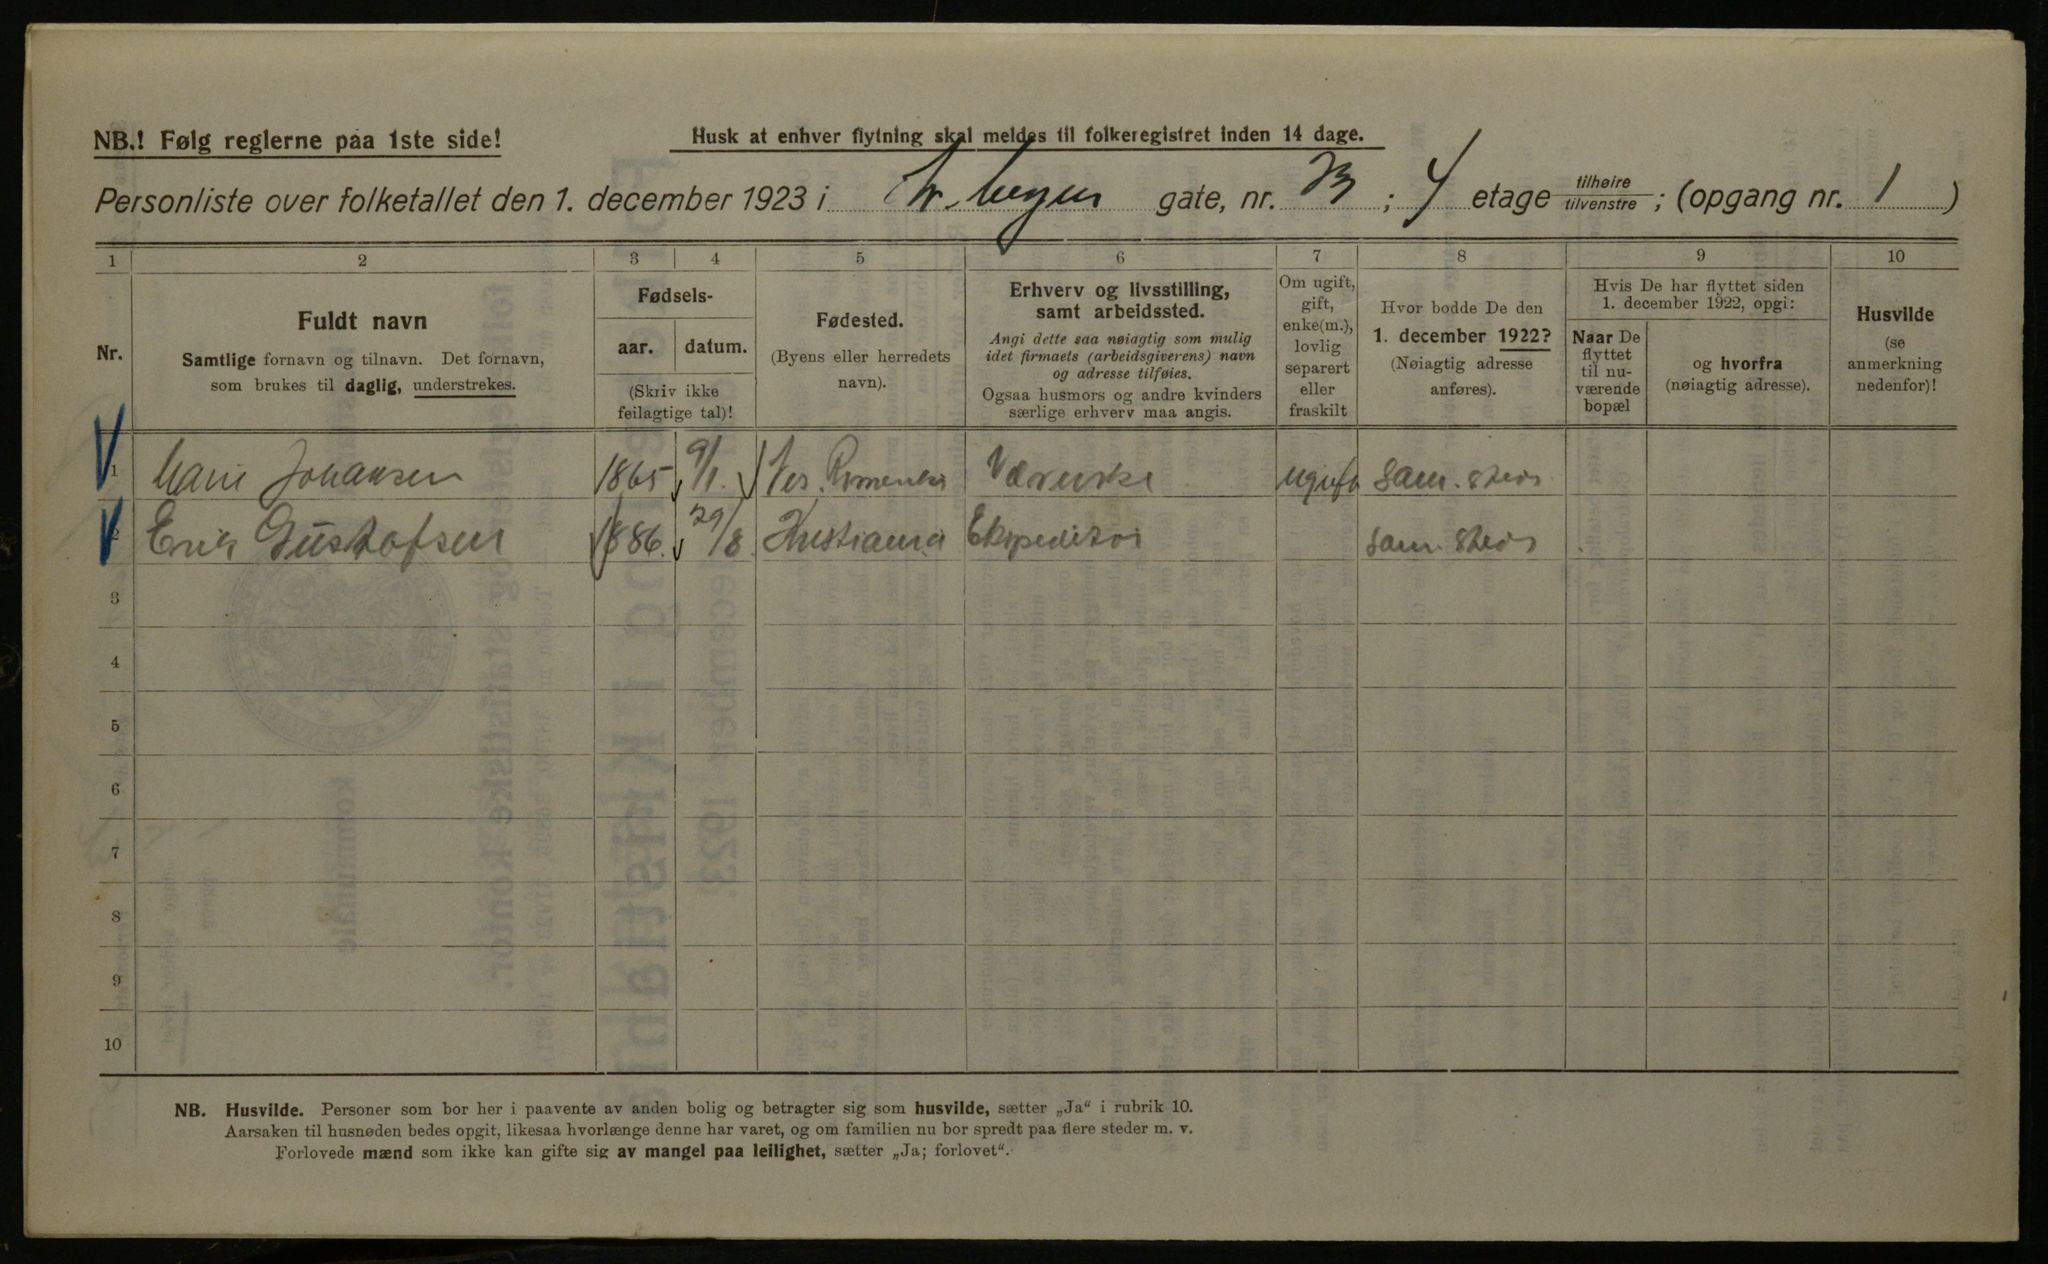 NB.! Følg reglerne paa 1ste side!
Husk at enhver flytning skal meldes til folkeregistret inden 14 dage.
Personliste over folketallet den 1. december 1923 i gate, nr. 23; 4 etage tilhøire tilvenstre; (opgang nr. 1)
1 2 3 4 5 6 7 8 9 10
Nr.
Fuldt navn
Samtlige fornavn og tilnavn. Det fornavn,
som brukes til daglig, understrekes.
Fødsels-
aar. datum.
(Skriv ikke
feilagtige tal)!
Fødested.
(Byens eller herredets
navn).
Erhverv og livsstilling,
samt arbeidssted.
Angi dette saa nøiagtig som mulig
idet firmaets (arbeidsgiverens) navn
og adresse tilføies.
Ogsaa husmors og andre kvinders
særlige erhverv maa angis.
Om ugift,
gift,
enke(m.),
lovlig
separert
eller
fraskilt
Hvor bodde De den
1. december 1922?
(Nøiagtig adresse
anføres).
Hvis De har flyttet siden
1. december 1922, opgi:
Naar De
flyttet
til nu-
værende
bopæl
og hvorfra
(nøiagtig adresse).
Husvilde
(se
anmerkning
nedenfor)!
1 Marie Johansen 1865 9/1. Ugift Sam. steds
2 Erik Gustafsen 1886. 29/8. Kristiania Ekspeditør Sam. Steds
3
4
5
6
7
8
9
10
NB. Husvilde. Personer som bor her i paavente av anden bolig og betragter sig som husvilde, sætter „Ja“ i rubrik 10.
Aarsaken til husnøden bedes opgit, likesaa hvorlænge denne har varet, og om familien nu bor spredt paa flere steder m. v.
Forlovede mænd som ikke kan gifte sig av mangel paa leilighet, sætter „Ja; forlovet“.